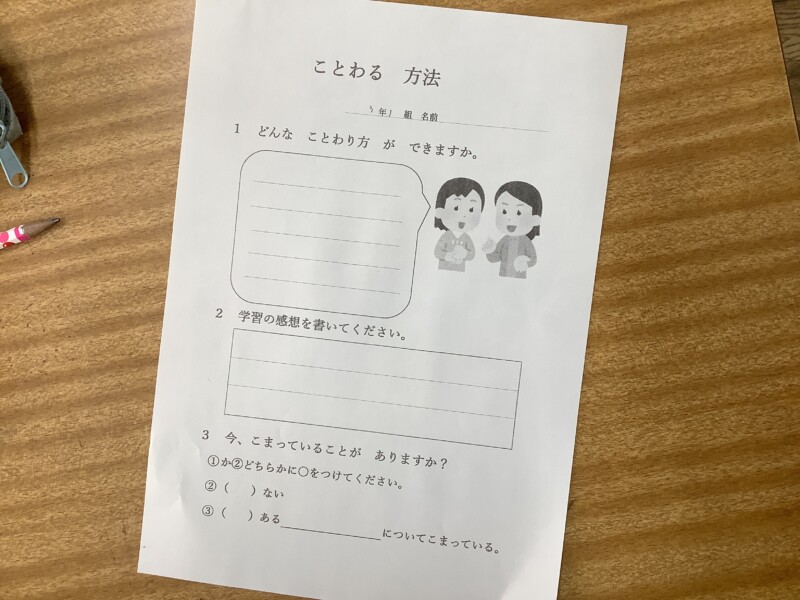 ことわる 方法
年 組 名前
1 どんな ことわり方 が できますか。
2 学習の感想を書いてください。
3 今、こまっていることが ありますか？
①か②どちらかに○をつけてください。
②（ ）ない
③（ ）ある＿＿＿＿＿＿＿＿についてこまっている。